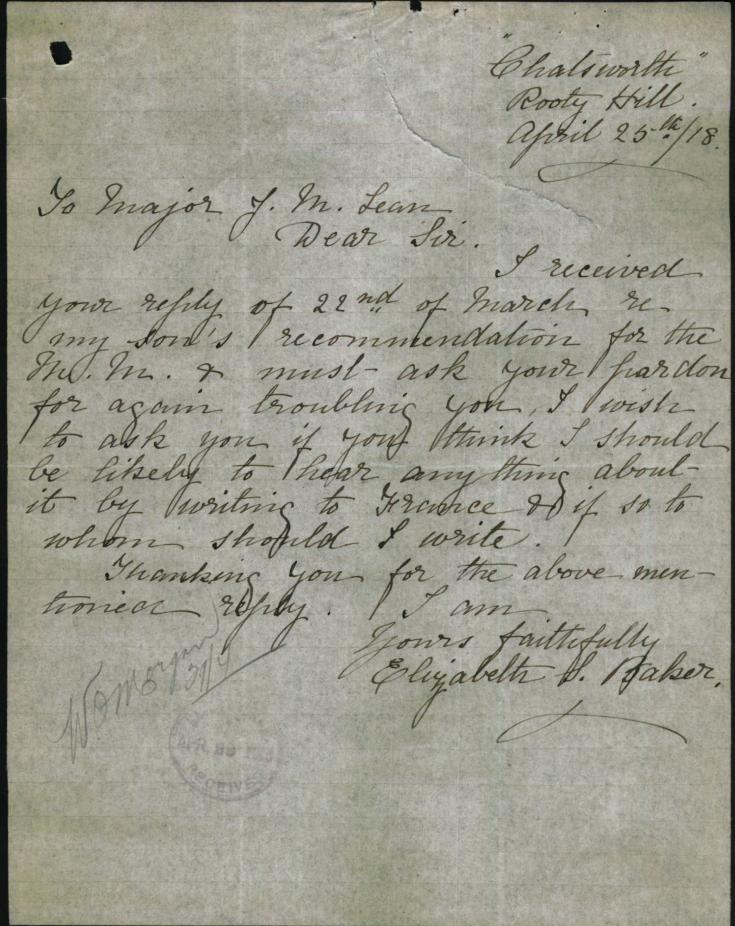 "Chatsworth"
Rooty Hill.
April 25th/18.
To Major J. M. Lean
Dear Sir.
I received
your reply of 22nd of March re
my son's recommendation for the
M. M. & must ask your pardon
for again troubling you, I wish
to ask you if you think I should
be likely to hear anything about
it by writing to France & if so to
whom should I write.
Thanking you for the above men-
tioned reply. I am
Yours faithfully
Elizabeth S. Baker.
APR
RECEIVED